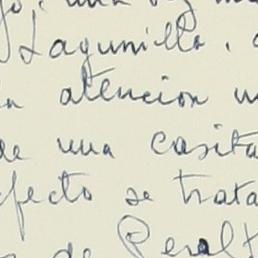 una
Lagunilla,
atencion
de una casita
efecto se trata
de Peralt